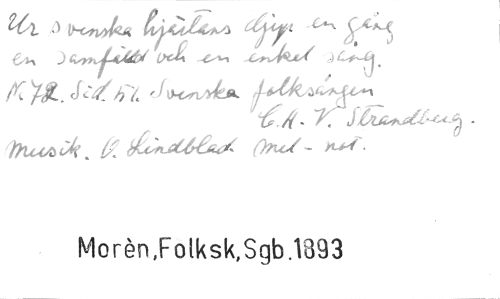 Ur svenska hjärtans djup en gång
en samfäld och en enkel sång.
N. 72. Sid. 51. Svenska folksången
C.A.V. Strandberg.
Musik. O. Lindblad. Mel-not.
Morèn,Folksk,Sgb.1893